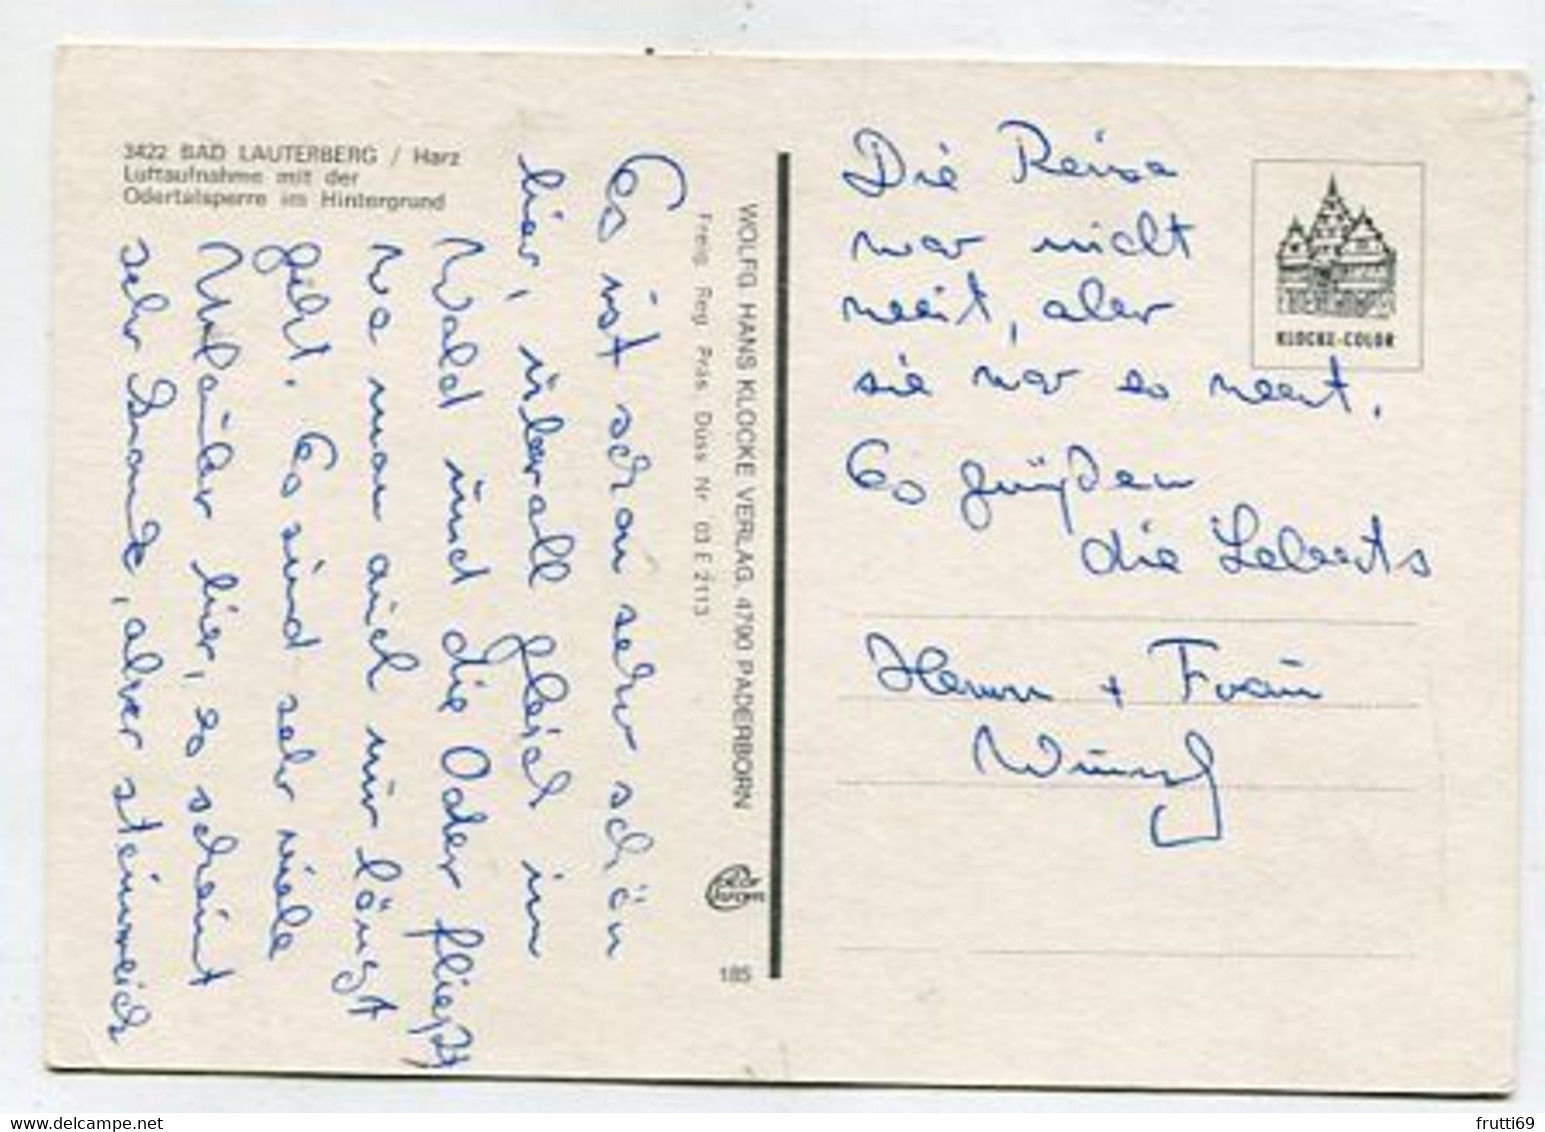 3422 BAD LAUTERBERG / Harz
Luftaufnahme mit der
Odertalsperre im Hintergrund
Es ist schon sehr schön
hier, überall gleich im
Wald und die Oder fließt
wo man auch nur längst
geht. Es sind sehr viele
Urlauber hier, es scheint
sehr, aber steinreich
WOLFG. HANS KLOCKE VERLAG. 4790 PADERBORN
Freig. Reg. Präs. Düss. Nr. 03 E 2113
185
Die Reise
war nicht
weit, aber
sie war es wert.
Es grüßen
die
KLOCKE-COLOR
Herrn + Frau
frutti69